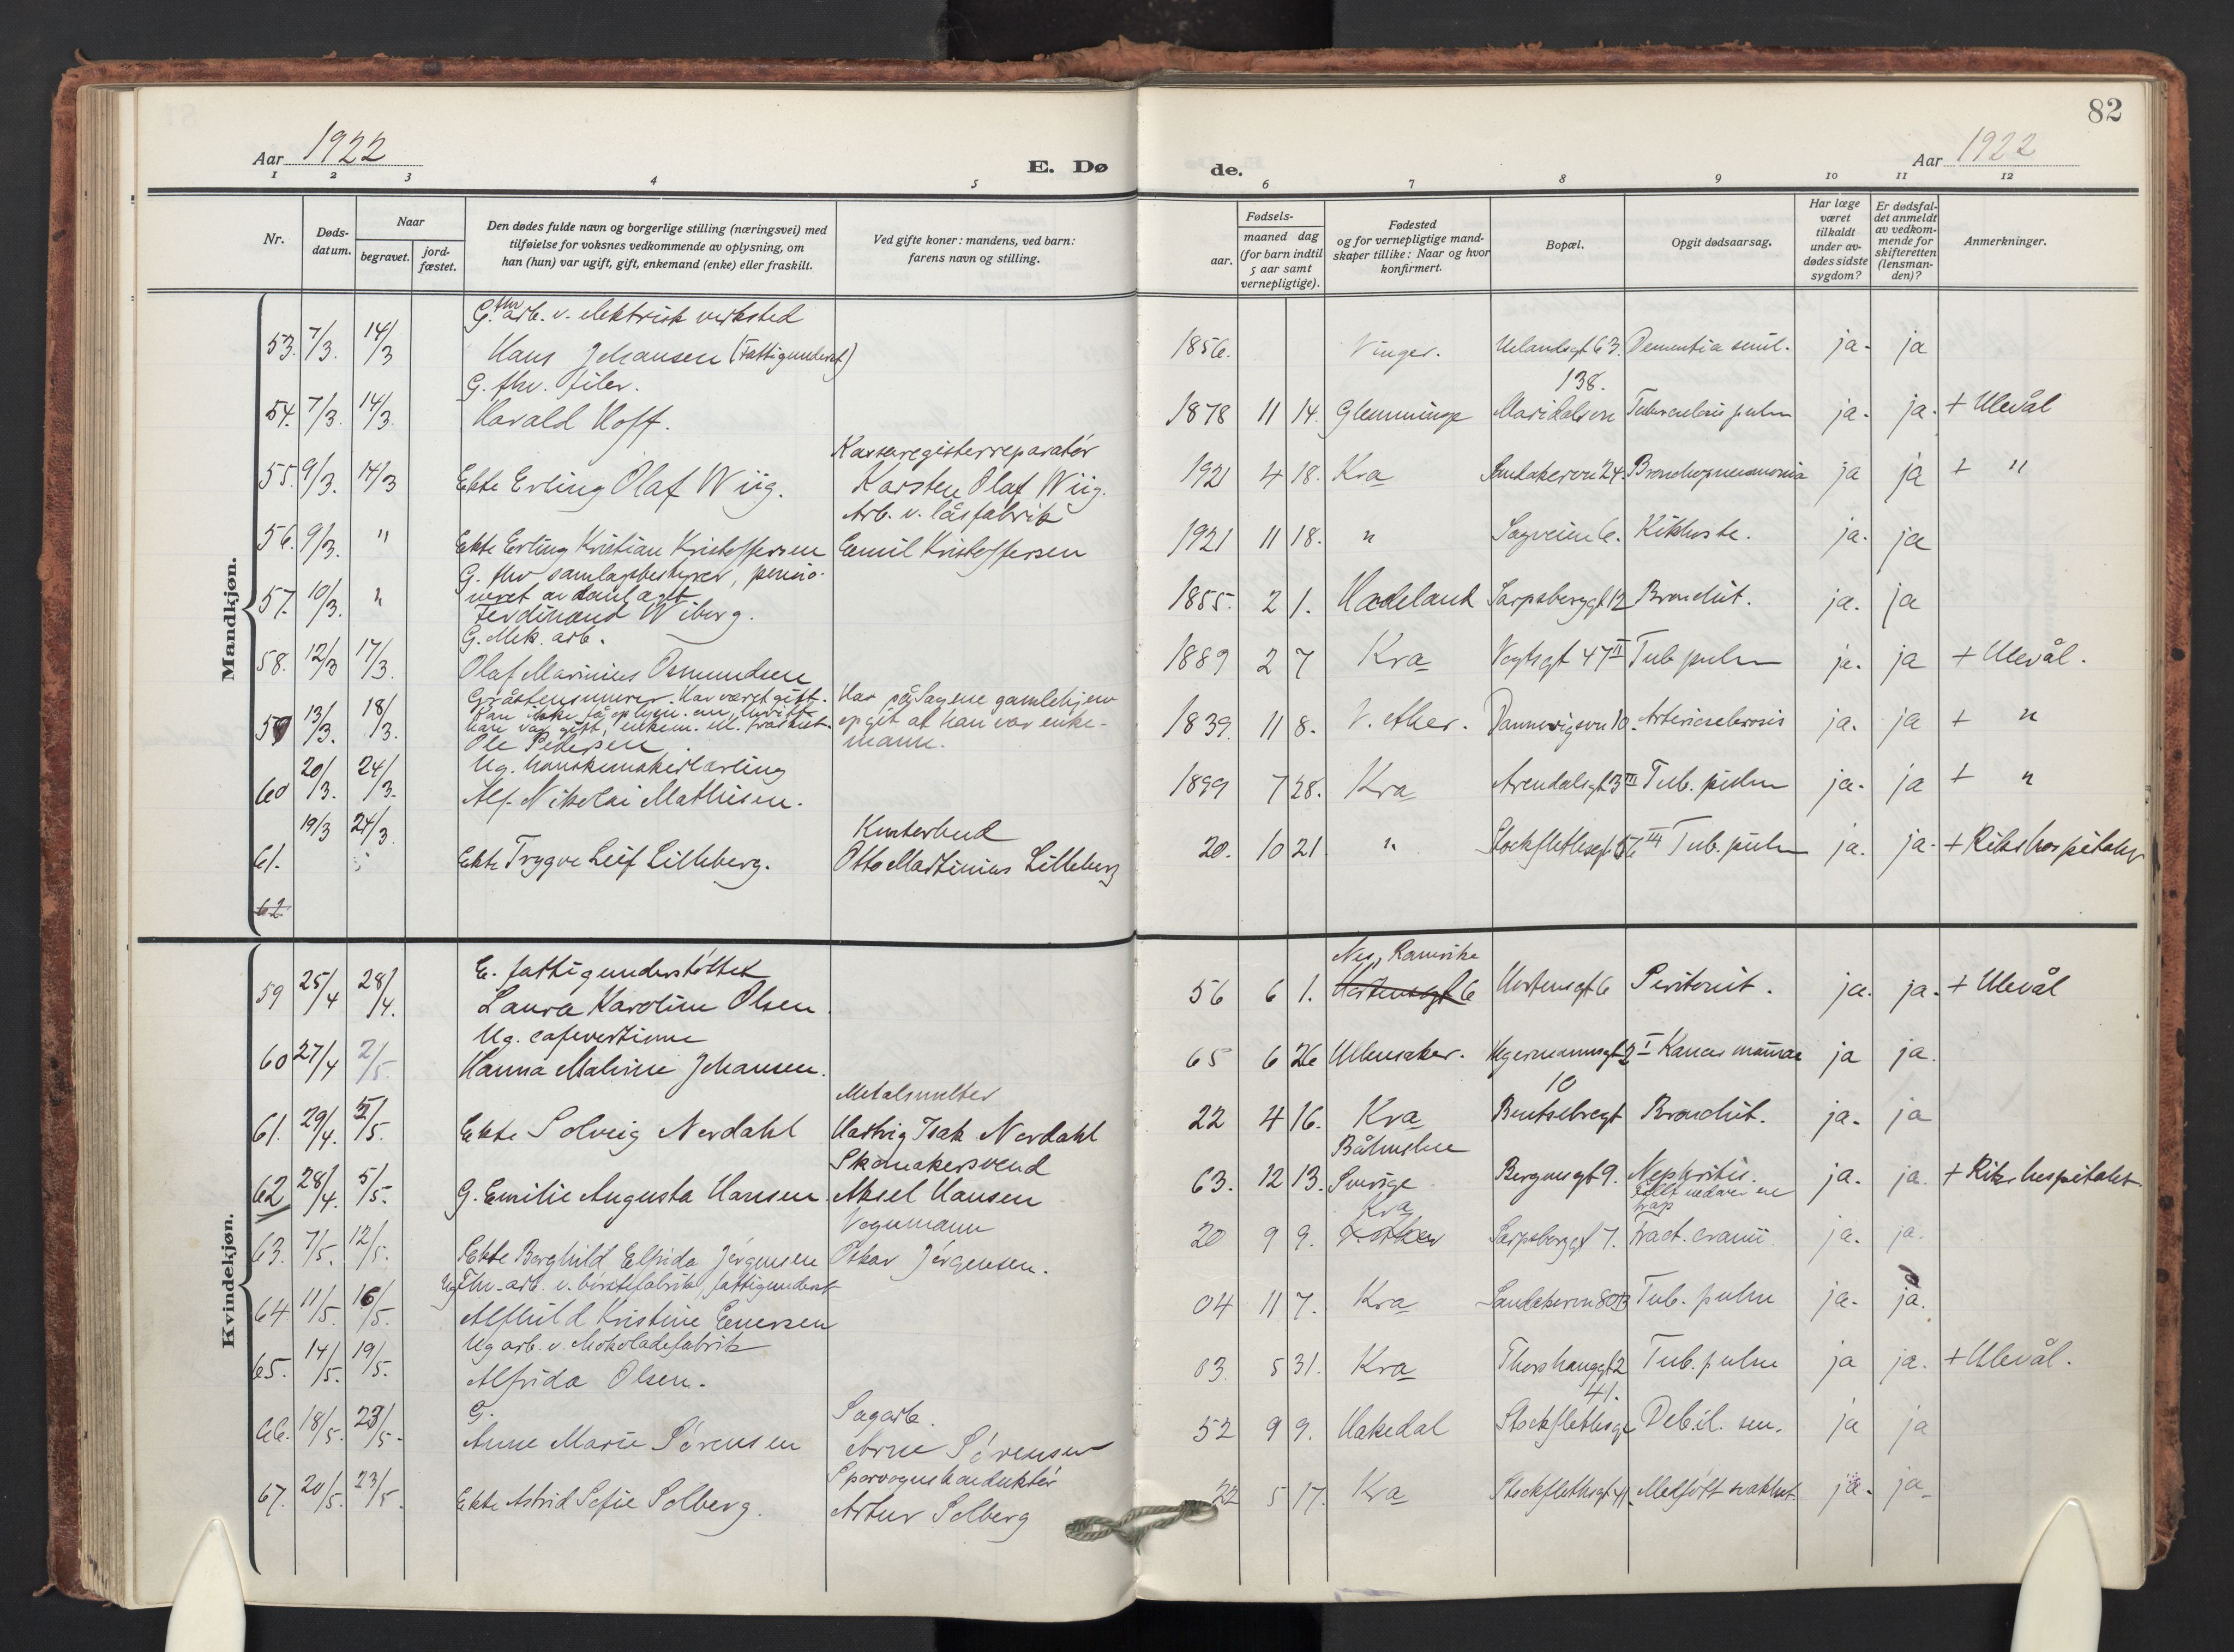 82
Aar 1922
E. Dø
de.
Aar 1922
1 2 3 4 5 6 7 8 9 10 11 12
Nr.
Døds-
datum.
Naar
begravet.
jord-
fæstet.
Den dødes fulde navn og borgerlige stilling (næringsvei) med
tilføielse for voksnes vedkommende av oplysning, om
han (hun) var ugift, gift, enkemand (enke) eller fraskilt.
Ved gifte koner: mandens, ved barn:
farens navn og stilling.
Fødsels-
aar.
maaned dag
(for barn indtil
5 aar samt
vernepligtige).
Fødested
og for vernepligtige mand-
skaper tillike: Naar og hvor
konfirmert.
Bopæl.
Opgit dødsaarsag.
Har læge
været
tilkaldt
under av-
dødes sidste
sygdom?
Er dødsfal-
det anmeldt
av vedkom-
mende for
skifteretten
(lensman-
den)?
Anmerkninger.
Mandkjøn.
G. fhv. arb. v. elektrisk verksted
53. 7/3. 14/3 Hans Johansen (Fattigunderst) 1856. Vinger. Uelandsgt 63. Dementia senil. ja. ja
G. fhv. filer.
138.
54. 7/3. 14/3. Harald Hoff. 1878 11 14. Glemminge Maridalsvn Tuberculosis pulm ja. ja. + Ulevål
Kasseregisterreparatør
55. 9/3. 14/3 Ekte Erling Olaf Wiig. Karsten Olaf Wiig. 1921 4 18. Kra Sandakervn 24. Bronchopneumonia ja ja + "
Arb. v. låsfabrik
56. 9/3. " Ekte Erling Kristian Kristoffersen Emil Kristoffersen 1921 11 18. " Sagveien 6. Kikhoste. ja. ja
G. fhv samlagsbestyrer, pensio-
neret av samlaget
57. 10/3. " Ferdinand Wiberg. 1855. 2 1. Hadeland Sarpsborggt 12 Bronchit. ja. ja
G. Mek. arb.
58. 12/3 17/3. Olaf Marinius Osmundsen 1889 2 7 Kra Vogtsgt 47 II Tub pulm ja. ja + Ulevål.
Gråstensmurer. Har været gift.
Kan ikke få oplysn. om hvorvidt
han var gift, enkem. el. fraskilt.
Har på Sagene gamlehjem
opgit at han var enke-
mann.
59 13/3. 18/3. Ole Pedersen 1839. 11 8. V. Aker. Dannevigsvn 10. Arteriosclerosis ja. ja + "
Ug. hanskemakerlærling
60 20/3. 24/3. Alf Nikolai Mathisen. 1899 7 28. Kra Arendalsgt 3 III Tub. pulm ja. ja + "
61. 19/3 24/3 Ekte Trygve Leif Lilleberg. Kontorbud
Otto Martinius Lilleberg 20. 10 21 " Stockflethsgt 56 III Tub. pulm ja. ja. + Rikshospitalet
62
Kvindekjøn.
E. fattigunderstöttet
Nes, Romerike
59 25/4 28/4. Laura Karoline Olsen. 56 6 1. Hortensgt 6 Hortensgt 6 Peritonit. ja. ja. + Ulevål
Ug. cafevertinne
60 27/4 2/5 Hanna Malvine Johansen. 65 6 26 Ullensaker. Hegermannsgt 2 I Kancer mamae ja ja.
Metalsmelter
10
61. 29/4. 2/5. Ekte Solveig Nordahl Hartvig Isak Nordahl 22 4 16. Kra Bentsebrogt Bronchit. ja. ja
Skomakersvend
Båhuslen
62 28/4. 5/5. G. Emilie Augusta Hansen Aksel Hansen 63. 12 13. Sverige Bergensgt 9. Nephritis. ja. ja. + Rikshospitalet
Vognmann
Kra
Falt nedover en
trap
63. 7/5. 12/5. Ekte Borghild Elfrida Jørgensen Oskar Jørgensen. 20 9 9. Sarpsborggt 7. Fract. cranii ja. ja.
Ug. Fhv. arb. v. børstefabrik, fattigunderst
64 11/5. 16/5. Alfhild Kristine Enersen 04 11 7. Kra Sandakervn 80 Tub. pulm ja. ja.
Ug arb. v. chokoladefabrik
65. 14/5. 19/5. Alfrida Olsen. 03. 5 31. Kra Thorshauggt 2 Tub. pulm ja ja. + Ulevål.
G.
Sagarb.
41.
66. 18/5. 23/5. Anne Marie Sørensen Arne Sørensen 52 9 9. Hakedal Stockflethsgt Debil. sen. ja ja
Sporvognskonduktør
67. 20/5. 23/5. Ekte Astrid Sofie Solberg. Artur Solberg 22 5 17. Kra Stockflethsgt 41. Medfødt svakhet. ja. ja.